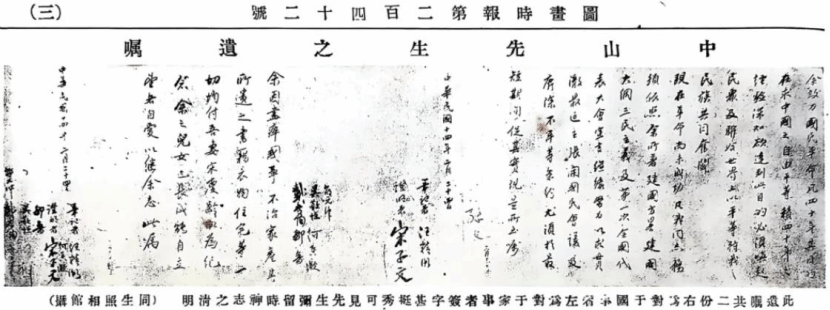 圖畫時報第二百四十二號
(三)
中山先生之遺囑
余致力國民革命凡四十年其目的
在求中國之自由平等積四十年之
經驗深知欲達到此目的必須喚起
民衆及聯合世界上以平等待我之
民族共同奮鬥
現在革命尚未成功凡我同志務
須依照余所著建國方略建國
大綱三民主義及第一次全國代
表大會宣言繼續努力以求貫
澈最近主張開國民會議及
廢除不平等條約尤須於最
短期間促其實現是所至囑
孫文
中華民國十四年二月二十四日
筆記者 汪精衛
證明者 宋子文
邵元冲
吳敬恆 何香凝
戴恩賽 鄒魯
余因盡瘁國事不治家產其
所遺之書籍衣物住宅等一
切均付吾妻宋慶齡以為紀
念余之兒女已長成能自立
望各自愛以繼余志此囑
中華民國十四年二月二十四日
筆記者 汪精衛
證明者 宋子文
何香凝
鄒魯
此遺囑共二份右爲對于國事者左爲對于家事者簽字甚挺秀可見先生彌留時神志之清明(同生照相館攝)